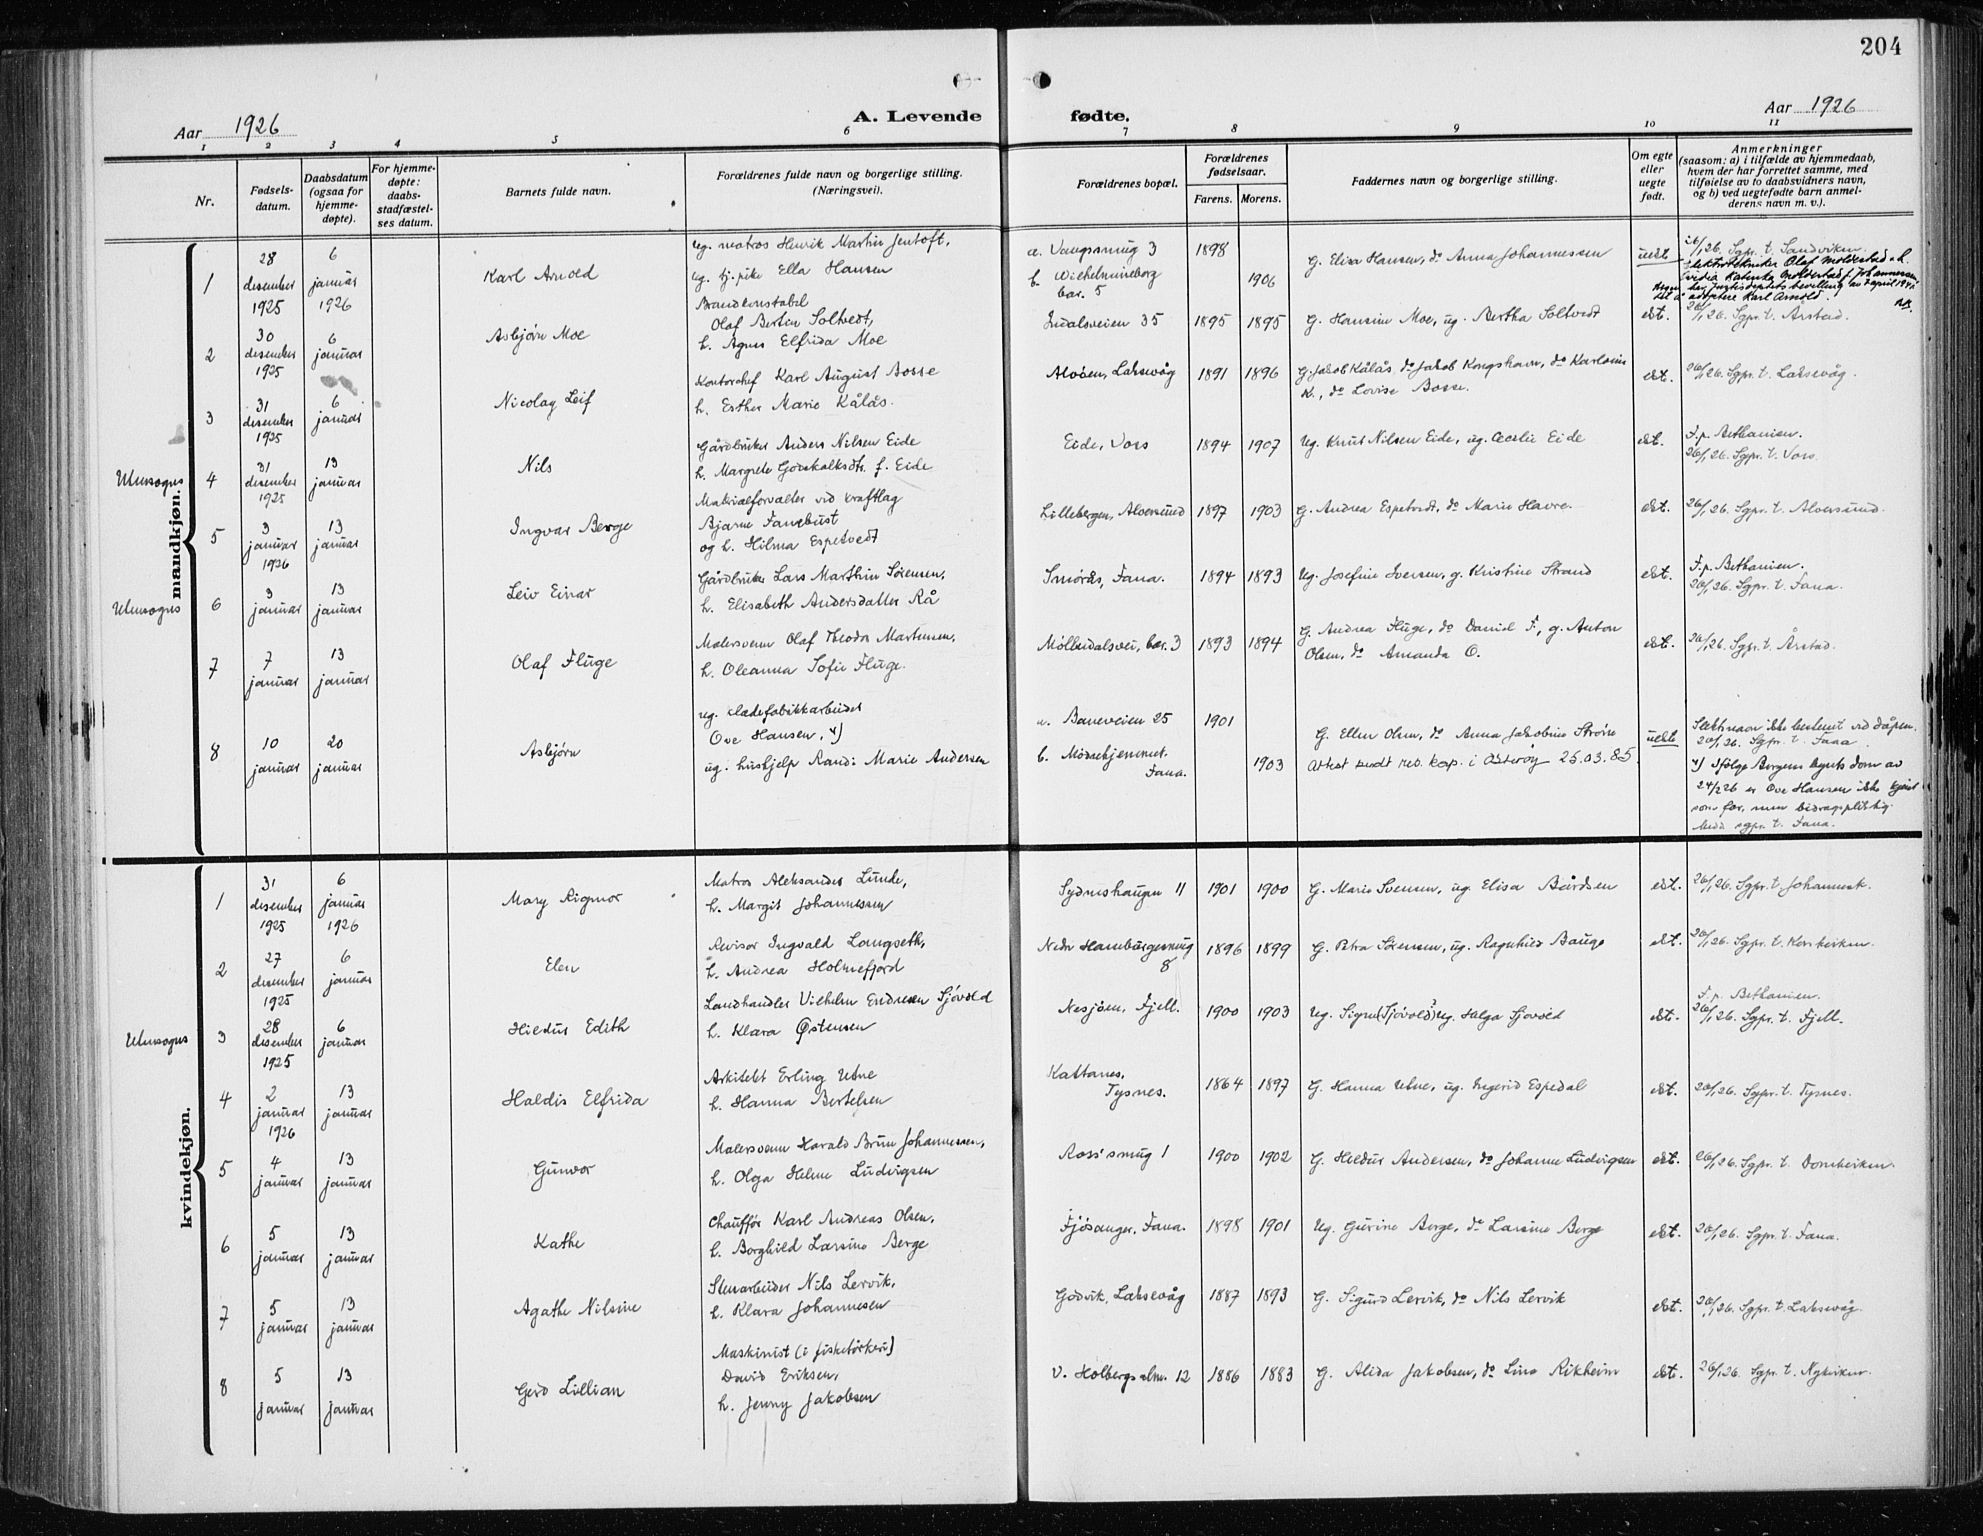 204
Aar 1926
A. Levende fødte.
Aar 1926
1 2 3 4 5 6 7 8 9 10 11
Nr.
Fødsels-datum.
Daabsdatum (ogsaa for hjemme-døpte).
For hjemme-døpte: daabs-stadfæstel-ses datum.
Barnets fulde navn.
Forældrenes fulde navn og borgerlige stilling. (Næringsvei).
Forældrenes bopæl.
Forældrenes fødselsaar.
Farens. Morens.
Faddernes navn og borgerlige stilling.
Om egte eller uegte født.
Anmerkninger (saasom: a) i tilfælde av hjemmedaab, hvem der har forrettet samme, med tilføielse av to daabsvidners navn, og b) ved uegtefødte barn anmel-derens navn m. v.).
mandkjøn.
1 28 desember 1925 6 januar 1926 Karl Arnold
ug. matros Henrik Martin Jentoft,
ug. tj.pike Ella Hansen
a. Vaagsmug 3 1898
b. Wilhelmineborg bar. 5 1906
G. Elisa Hansen, do Anna Johannessen
uekte
26/1,26. Sgpr. t. Sandviken.
Elektrotekniker Olaf Moldestad o. h. Katinka Moldestad f. Johannessen
bevilling av 2 april 1941 til å adoptere Karl Arnold.
2 30 desember 1925 6 januar Asbjørn Moe
Brandkonstabel
Olaf Berten Soltvedt,
h. Agnes Elfrida Moe
Indalsveien 35 1895 1895
G. Hansine Moe, ug. Bertha Soltvedt
ekt.
26/1,26. Sgpr. t. Årstad.
3 31 desember 1925 6 januar Nicolay Leif
Kontorchef Karl August Bosse
h. Esther Marie Kålås.
Alvøen, Laksevåg 1891 1896
G. Jakob Kålås, do Jakob Kongshavn, do Karoline
K., do Lovise Bosse.
ekt.
26/1,26. Sgpr. t. Laksevåg.
Utensogns 4 31 desember 1925 13 januar Nils
Gårdbruker Anders Nilsen Eide
h. Margrete Godskalksdtr. f. Eide
Eide, Voss 1894 1907
Ug. Knut Nilsen Eide, ug. Cecilie Eide
ekt.
F.p. Bethanien.
26/1,26. Sgpr. t. Voss.
5 3 januar 1926 13 januar Ingvar Berge
Materialforvalter ved kraftlag
Bjarne Fanebust
og h. Hilma Espetvedt
Lillebergen, Alversund 1897 1903
G. Andrea Espetvedt, do Marie Havre.
ekt.
26/1,26. Sgpr. t. Alversund.
Utensogns 6 3 januar 13 januar Leiv Einar
Gårdbruker Lars Marthin Sørensen,
h. Elisabeth Andersdatter Rå
Smørås, Fana. 1894 1893
Ug. Josefine Iversen, g. Kristine Strand
ekt.
F.p. Bethanien.
26/1,26. Sgpr. t. Fana.
7 7 januar 13 januar Olaf Fluge
Malersvenn Olaf Theodor Martensen,
h. Oleanna Sofie Fluge.
Møllendalsvei, bar. 3 1893 1894
G. Andrea Fluge, do Daniel F., g. Anton
Olsen, do Amanda O.
ekt.
26/1,26. Sgpr. t. Årstad.
8 10 januar 20 januar Asbjørn
ug. klædefabrikkarbeider
Ove Hansen, x)
ug. hushjelp Randi Marie Andersen
a. Baneveien 25 1901
b. Mødrehjemmet. Fana. 1903
G. Ellen Olsen, do Anna Jakobine Strøm
Attest sendt res. kap. i Osterøy 25.03.85.
uekte
Slektsnavn ikke bestemt ved dåpen.
26/1,26. Sgpr. t. Fana
x) Ifølge Bergens byrets dom av
24/2 26 er Ove Hansen ikke kjent
som far, men bidragspliktig.
Medd. sgpr. t. Fana.
kvindekjøn.
1 31 desember 1925 6 januar 1926 Mary Rigmor
Matros Aleksander Lunde,
h. Margit Johannessen
Sydneshaugen 11 1901 1900
G. Marie Svensen, ug. Elisa Bårdsen
ekt.
26/1,26. Sgpr. t. Johannesk.
2 27 desember 1925 6 januar Elen
Revisor Ingvald Langseth,
h. Andrea Holmefjord
Nedr Hamburgersmug 8 1896 1899
G. Petra Sørensen, ug. Ragnhild Bauge
ekt.
26/1,26. Sgpr. t. Korskirken.
Utensogns 3 28 desember 1925 6 januar Hildur Edith
Landhandler Vilhelm Endresen Sjøvold
h. Klara Østensen
Nesjøen, Fjell. 1900 1903
Ug. Signe (Sjøvold?) ug. Helga Sjøvold
ekt.
F.p. Bethanien.
26/1,26. Sgpr. t. Fjell.
4 2 januar 1926 13 januar Haldis Elfrida
Arkitekt Erling Utne
h. Hanna Bertelsen
Kattanes, Tysnes. 1864 1897
G. Hanna Utne, ug. Ingerid Espedal
ekt.
26/1,26. Sgpr. t. Tysnes.
5 4 januar 13 januar Gunvor
Malersvenn Harald Brun Johannessen,
h. Olga Helene Ludvigsen
Ross'smug 1 1900 1902
G. Hildur Andersen, do Johanne Ludvigsen
ekt.
26/1,26. Sgpr. t. Domkirken.
6 5 januar 13 januar Kathe
Chauffør Karl Andreas Olsen.
h. Borghild Larsine Berge
Fjøsanger, Fana. 1898 1901
Ug. Gurine Berge, do Larsine Berge
ekt.
26/1,26. Sgpr. t. Fana.
7 5 januar 13 januar Agathe Nilsine
Stenarbeider Nils Lervik,
h. Klara Johannesen
Godvik, Laksevåg 1887 1893
G. Sigurd Lervik, do Nils Lervik
ekt.
26/1,26. Sgpr. t. Laksevåg.
8 5 januar 13 januar Gerd Lillian
Maskinist (i fisketørkeri)
David Eriksen,
h. Jenny Jakobsen
V. Holbergsalm. 12 1886 1883
G. Alida Jakobsen, do Lina Rikheim
ekt.
26/1,26. Sgpr. t. Nykirken.